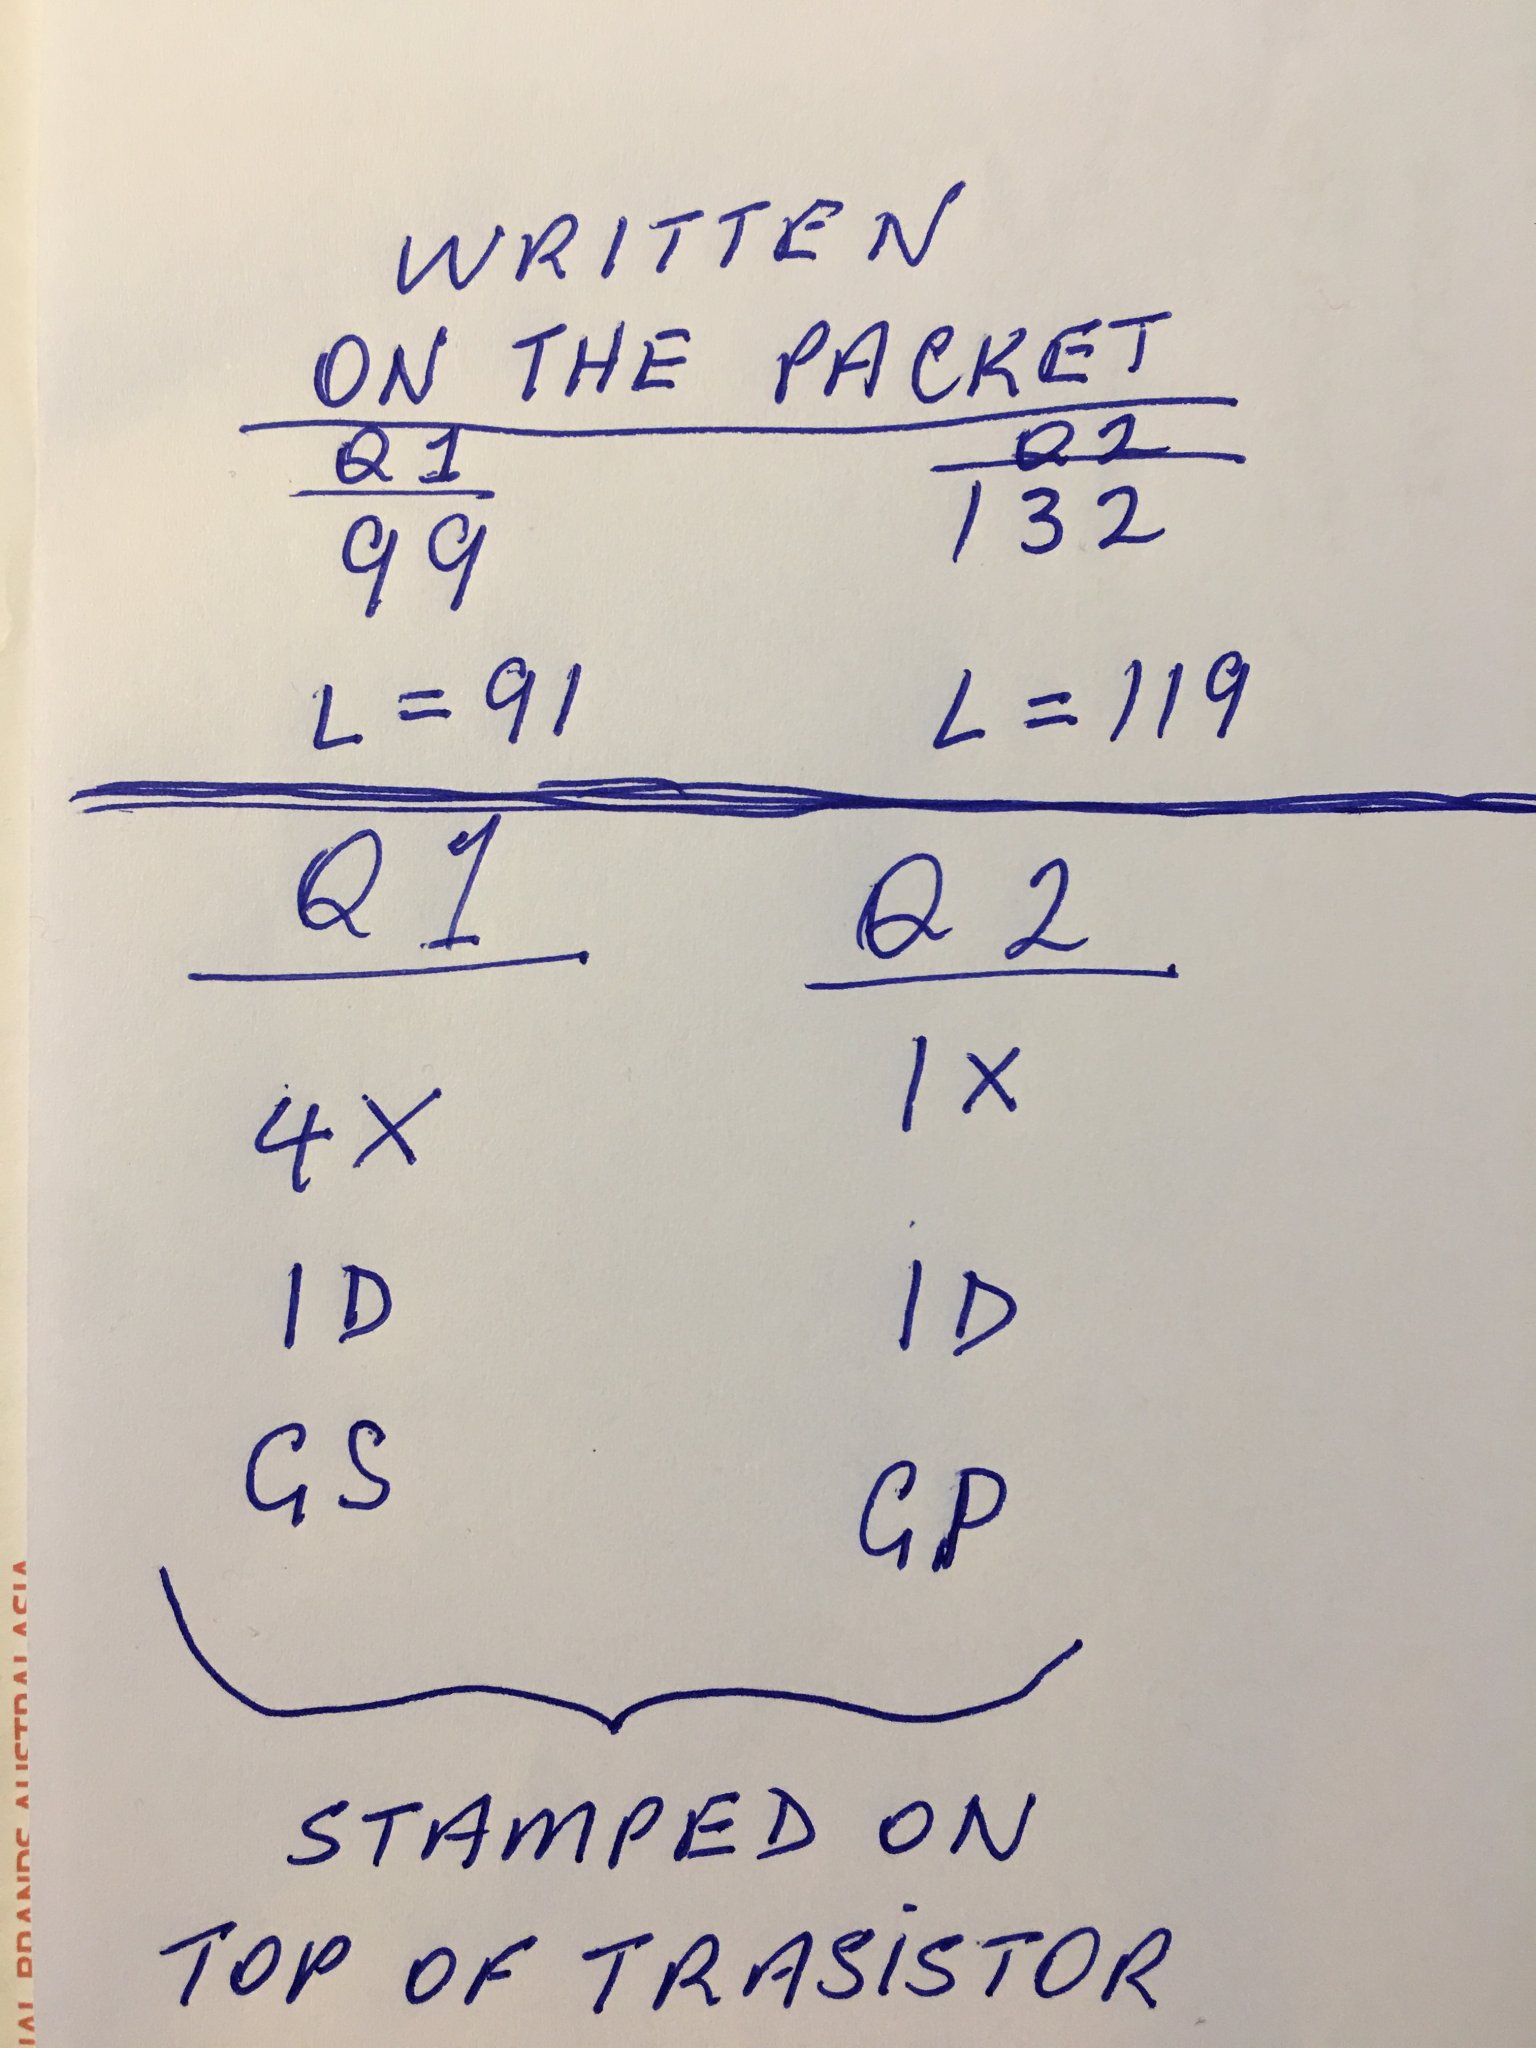 WRITTEN
ON THE PACKET
Q1 Q2
99 132
L = 91 L = 119
Q1 Q2
4X 1X
1D 1D
GS GP
STAMPED ON
TOP OF TRASiSTOR
AL BRANDS AUSTRALASIA